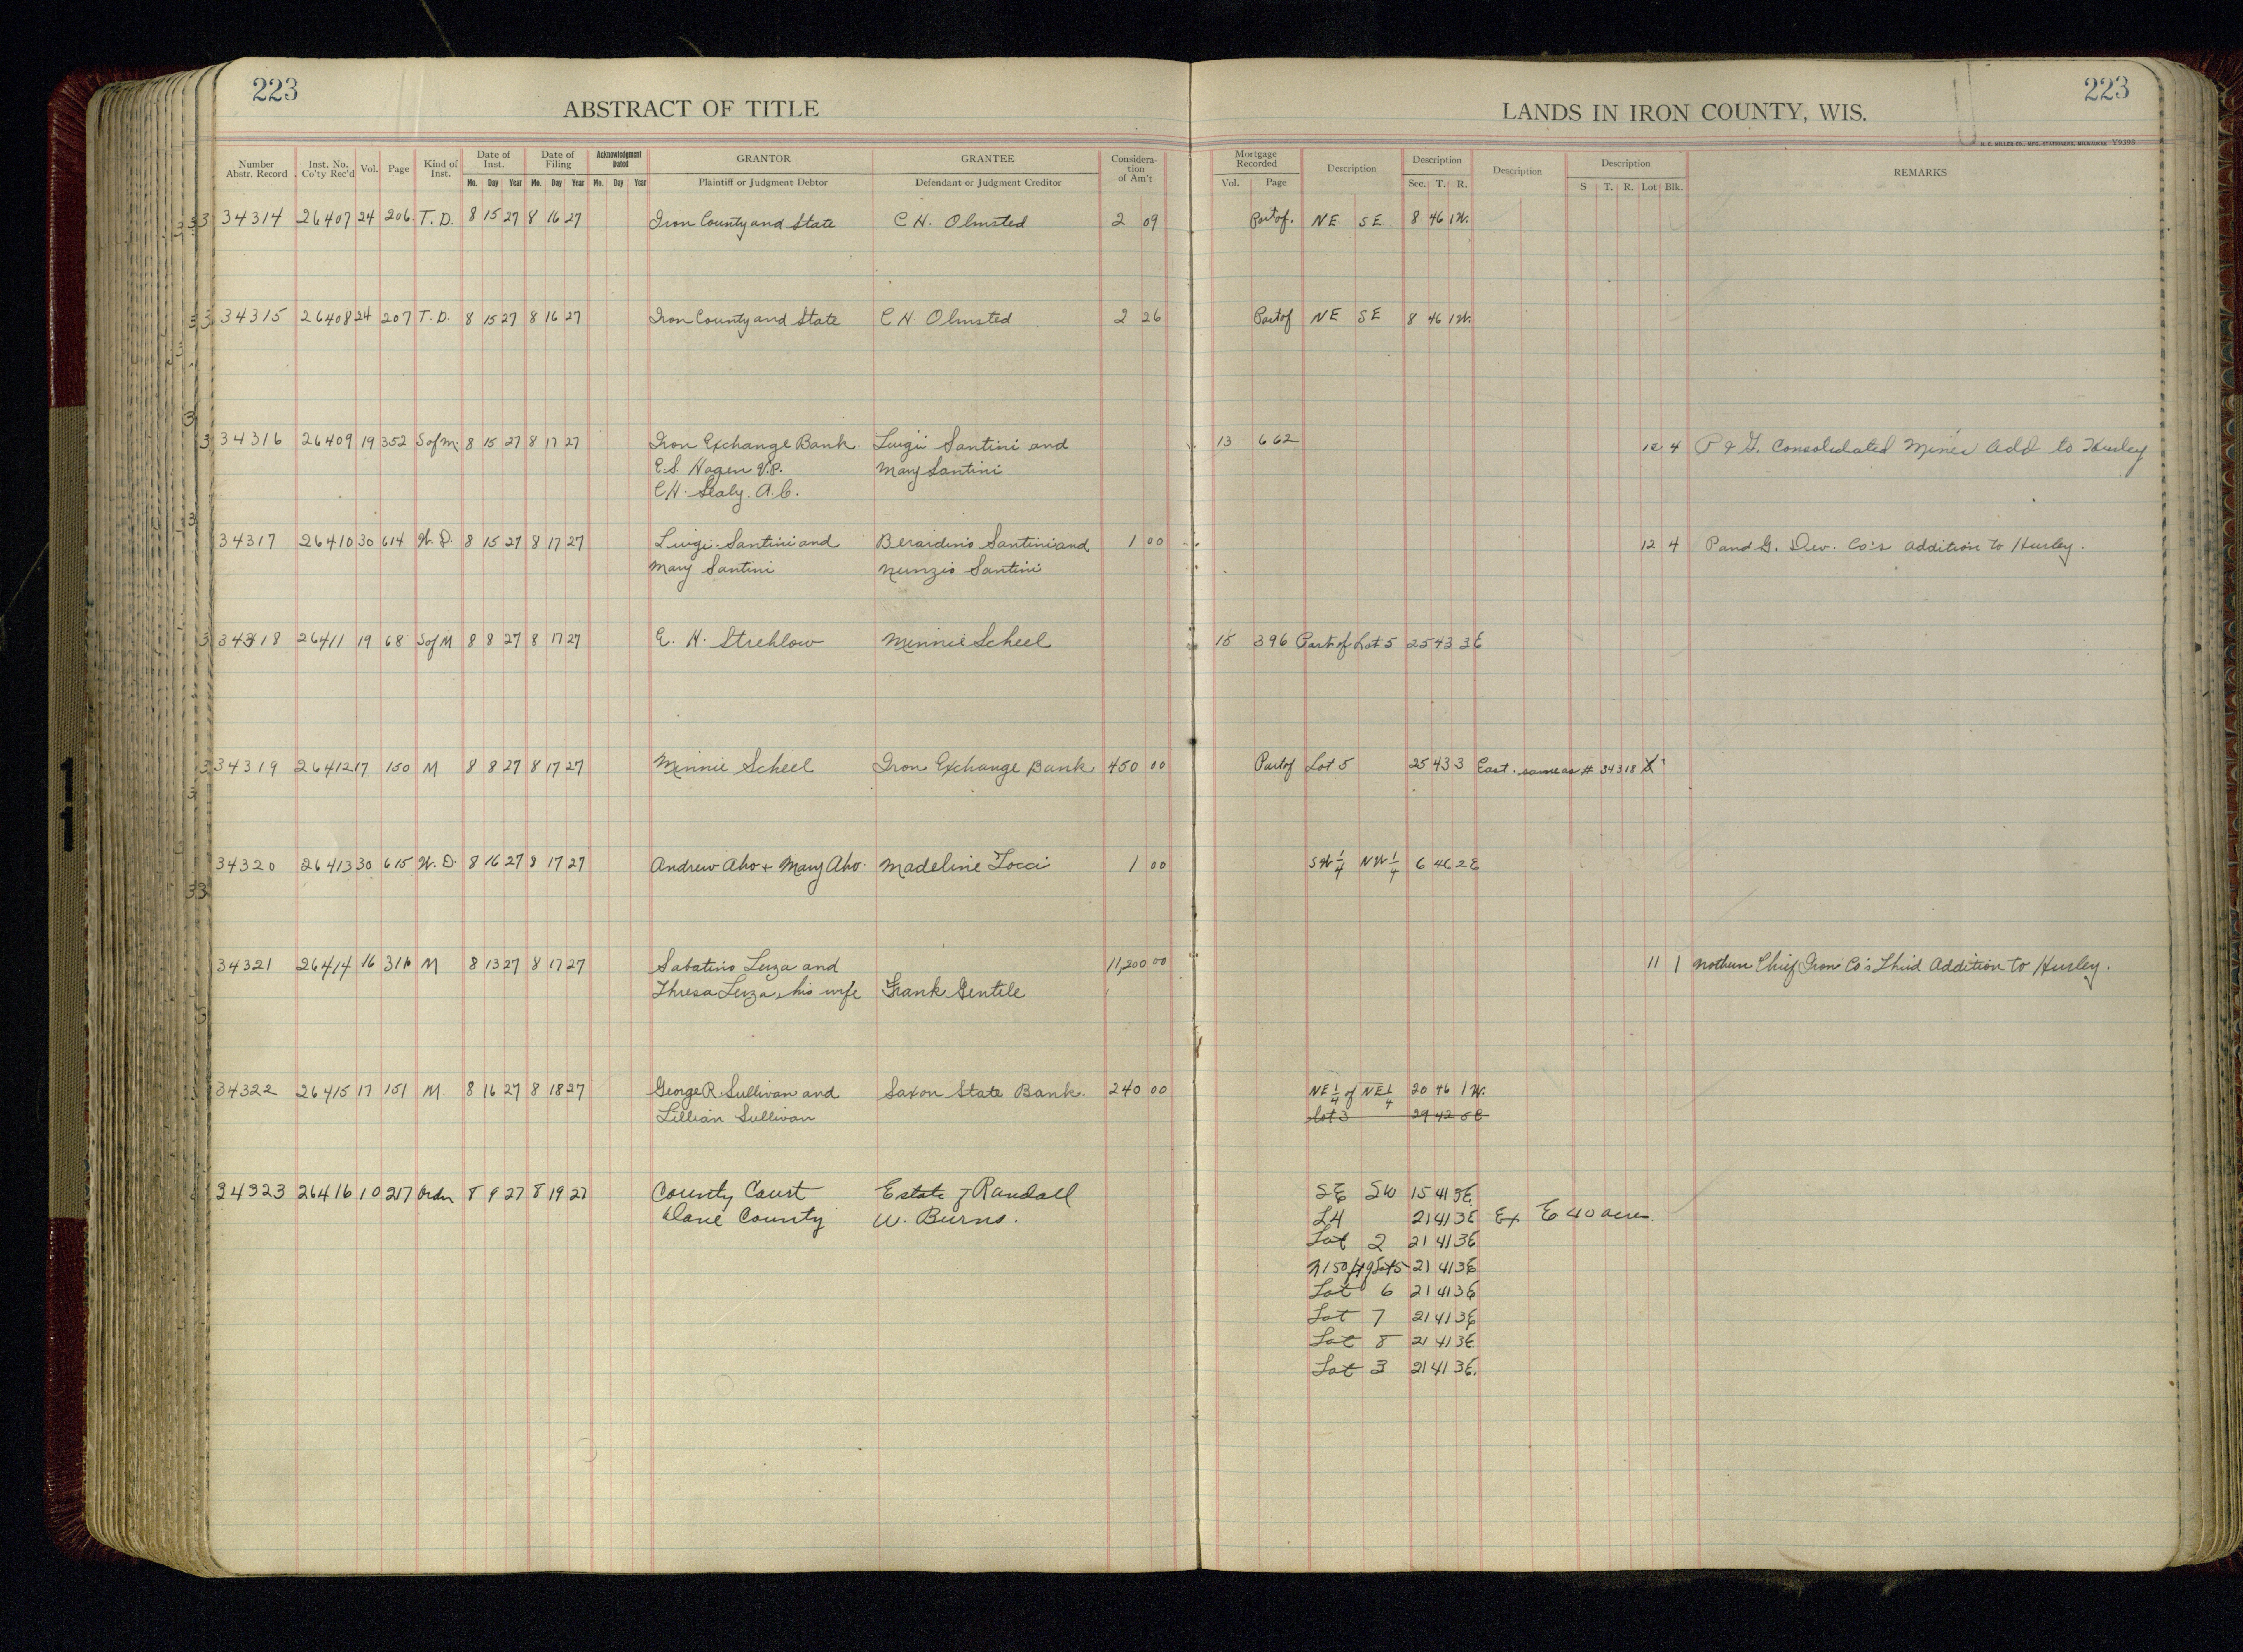 223
ABSTRACT OF TITLE
LANDS IN IRON COUNTY, WIS.
223
H. C. MILLER CO., MFG. STATIONERS, MILWAUKEE Y9398
Number Abstr. Record Inst. No. Co'ty Rec'd Vol. Page Kind of Inst. Date of Inst. Mo. Day Year Date of Filing Mo. Day Year Acknowledgment Dated Mo. Day Year GRANTOR Plaintiff or Judgment Debtor GRANTEE Defendant or Judgment Creditor Considera-tion of Am't Mortgage Recorded Vol. Page Description Description Sec. T. R. Description Description S T. R. Lot Blk. REMARKS
34314 26407 24 206 T. D. 8 15 27 8 16 27 Iron County and State C H. Olmsted 2 09 Part of. NE SE 8 46 1W.
34315 26408 24 207 T. D. 8 15 27 8 16 27 Iron County and State C H. Olmsted 2 26 Part of NE SE 8 46 1W.
34316 26409 19 352 S of M. 8 15 27 8 17 27 Iron Exchange Bank. Luigi Santini and 13 662 12 4 P & G. Consolidated Mines Add to Hurley
E. S. Hagen V. P. Mary Santini
C H. Sealy. A. C.
34317 26410 30 614 W. D. 8 15 27 8 17 27 Luigi Santini and Berardino Santini and 1 00 12 4 P and G. Dev. Co's addition to Hurley.
Mary Santini Nunzio Santini
34318 26411 19 68 S of M 8 8 27 8 17 27 E. H. Strehlow Minnie Scheel 15 396 Part of Lot 5 25 43 3E
34319 26412 17 150 M 8 8 27 8 17 27 Minnie Scheel Iron Exchange Bank 450 00 Part of Lot 5 25 43 3 East. same as # 34318
34320 26413 30 615 W. D. 8 16 27 8 17 27 Andrew Aho + Mary Aho. Madeline Tocci 1 00 SW 1/4 NW 1/4 6 46 2E
34321 26414 16 311 M 8 13 27 8 17 27 Sabatino Leza and 11,200 00 11 1 Nothern Chief Iron Co's Third Addition to Hurley.
Thresa Leza, his wife Frank Gentile
34322 26415 17 151 M. 8 16 27 8 18 27 George R. Sullivan and Saxon State Bank. 240 00 NE 1/4 of NE 1/4 20 46 1W.
Lillian Sullivan Lot 3 29 42 5E
34323 26416 10 217 Order 8 9 27 8 19 27 County Court Estate of Randall SE SW 15 41 3E.
Dane County W. Burns. L4 21 41 3E Ex E 40 acres.
Lot 2 21 41 3E
N 150 ft of Lot 5 21 41 3E
Lot 6 21 41 3E
Lot 7 21 41 3E
Lot 8 21 41 3E.
Lot 3 21 41 3E.
11